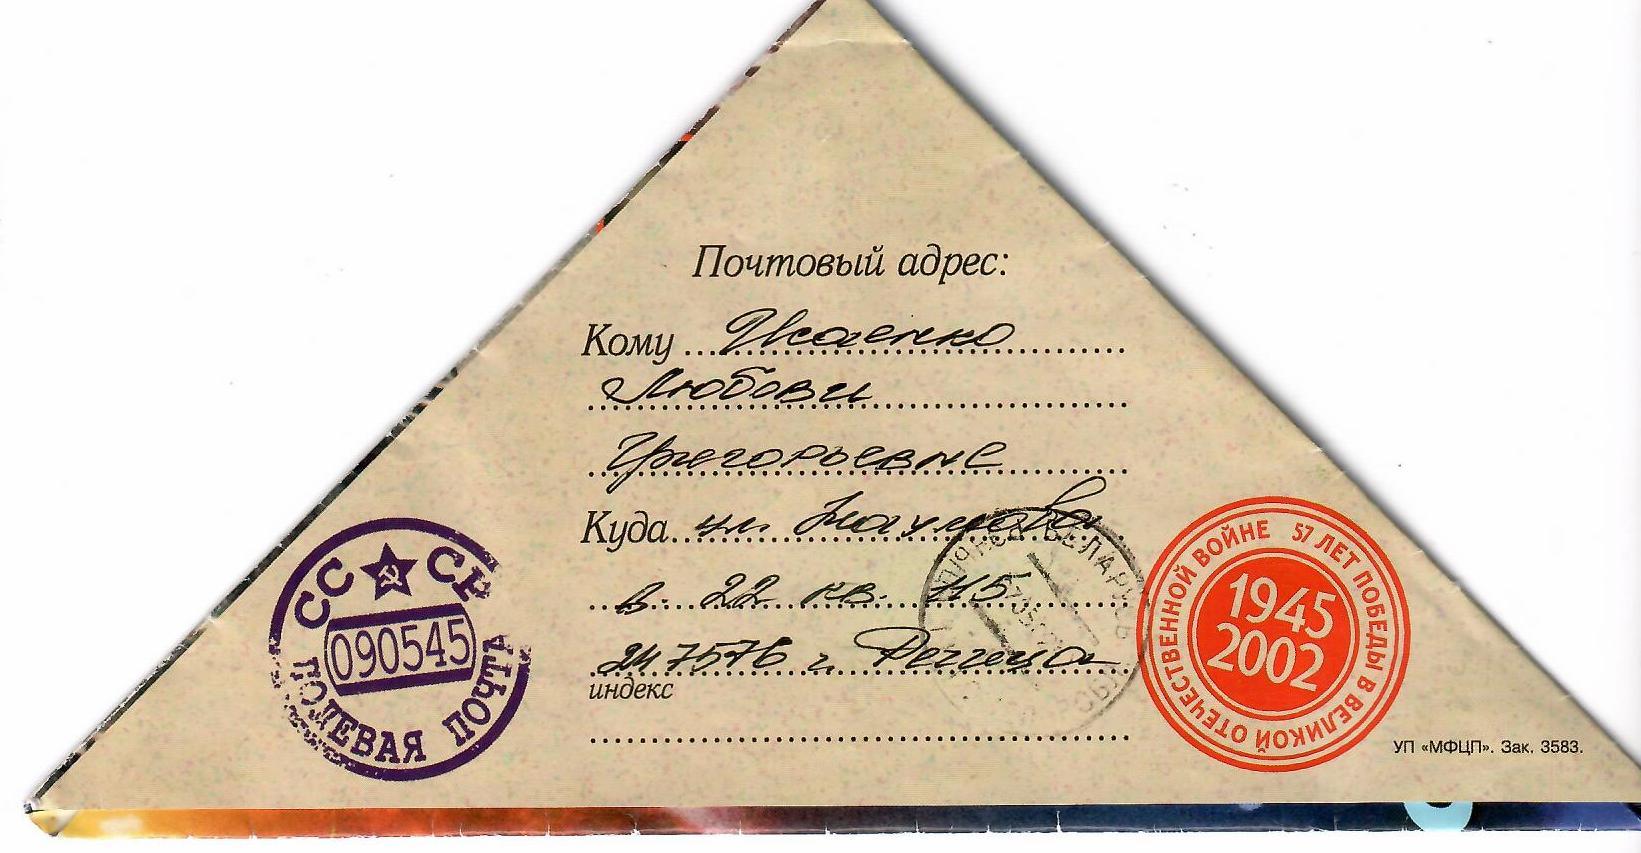 Почтовый адрес:
Кому Исаенко
Любови
Григорьевне
Куда ул. Наумова
д. 22 кв. 45
247576 г. Речица
индекс
СССР
090545
ПОЛЕВАЯ ПОЧТА
БЕЛАРУСЬ
57 ЛЕТ ПОБЕДЫ В ВЕЛИКОЙ ОТЕЧЕСТВЕННОЙ ВОЙНЕ
1945
2002
УП «МФЦП». Зак. 3583.